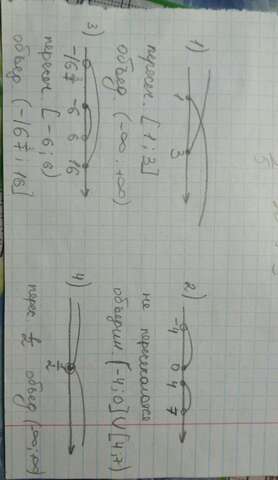 1)
1 3
пересеч. [1; 3]
объед. (-∞; +∞)
2)
-4 0 4 7
не пересекаются
объедин. (-4; 0] ∪ [4; 7)
3)
-6 6 16
пересеч [-6; 6)
объед
4)
1/2
перес 1/2 объед (-∞; +∞)